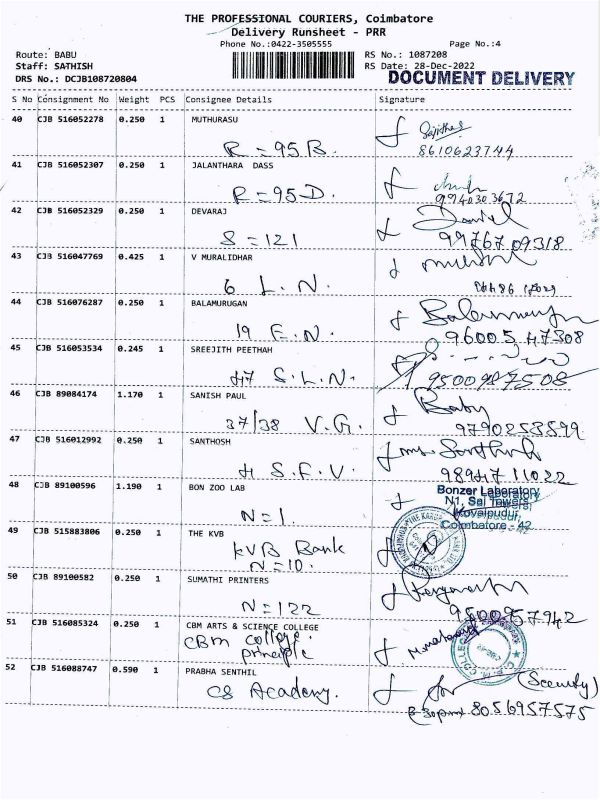 THE PROFESSIONAL COURIERS, Coimbatore
Delivery Runsheet - PRR
Phone No.:0422-3505555
Page No.:4
Route: BABU
RS No.: 1087208
Staff: SATHISH
RS Date: 28-Dec-2022
DRS No.: DCJB108720804
DOCUMENT DELIVERY
S No Consignment No Weight PCS Consignee Details Signature
40 CJB 516052278 0.250 1 MUTHURASU
R = 95 B.
8610623744
41 CJB 516052307 0.250 1 JALANTHARA DASS
R = 95 D.
9940303672
42 CJB 516052329 0.250 1 DEVARAJ
S = 121
9976709318
43 CJB 516047769 0.425 1 V MURALIDHAR
6 L. N.
44 CJB 516076287 0.250 1 BALAMURUGAN
19 E. N.
9600547308
45 CJB 516053534 0.245 1 SREEJITH PEETHAH
47 S. L. N.
9500987508
46 CJB 89084174 1.170 1 SANISH PAUL
37/38 V. G.
Baby
9790253599
47 CJB 516012992 0.250 1 SANTHOSH
4 S. F. V.
98947 11022
48 CJB 89100596 1.190 1 BON ZOO LAB
N = 1.
Bonzer Laboratory
N1, Sai Towers
Kovaipudur,
Coimbatore - 42
49 CJB 515883806 0.250 1 THE KVB
KVB Bank
N = 10.
50 CJB 89100582 0.250 1 SUMATHI PRINTERS
N = 122
9500957942
51 CJB 516085324 0.250 1 CBM ARTS & SCIENCE COLLEGE
CBM college.
principle
52 CJB 516088747 0.590 1 PRABHA SENTHIL
CS Academy.
(Security)
8056957575